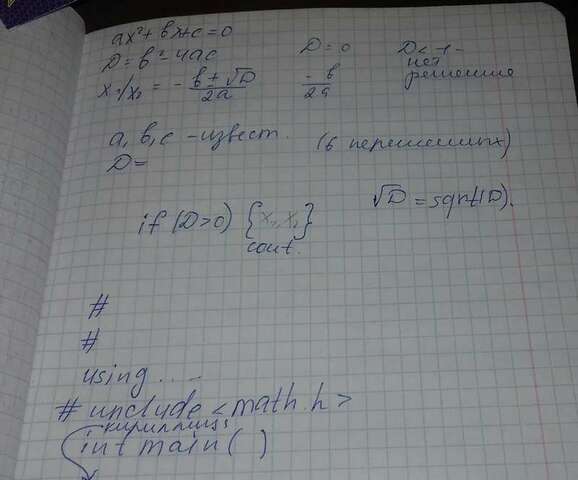 ax²+bx+c=0
D=b²-4ac
x₁/x₂ = - b±√D / 2a
D=0
-b / 2a
D<-1-
нет
решение
a, b, c -извест.
(6 переменных)
D=
if (D>0) {x₁, x₂}
cout.
√D = sqrt(D).
#
#
using ...-
# include <math.h>
кириллица
int main( )